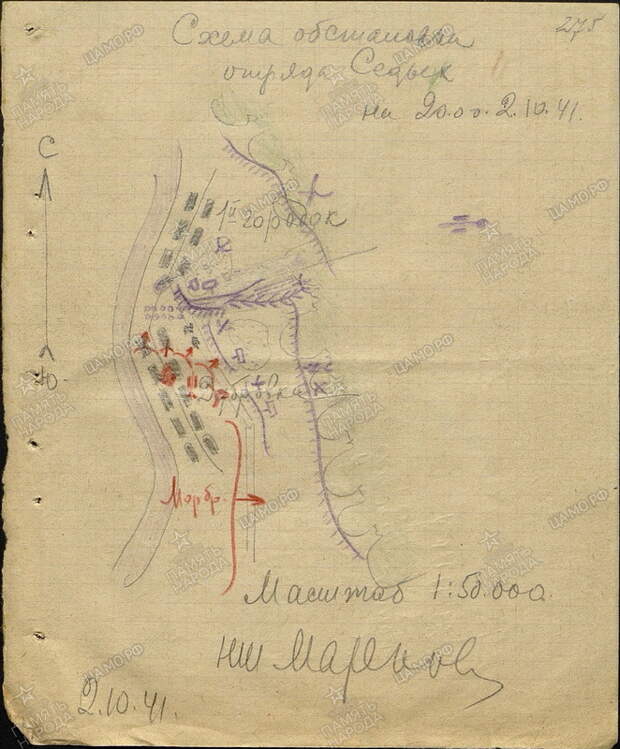 275
Схема обстановки
отряда Седых
на 20.00. 2.10.41.
С
1й городок
Ю.
Морбр.
Масштаб 1:50.000.
НШ Марков
2.10.41.
ПАМЯТЬ НАРОДА
ЦАМО.РФ